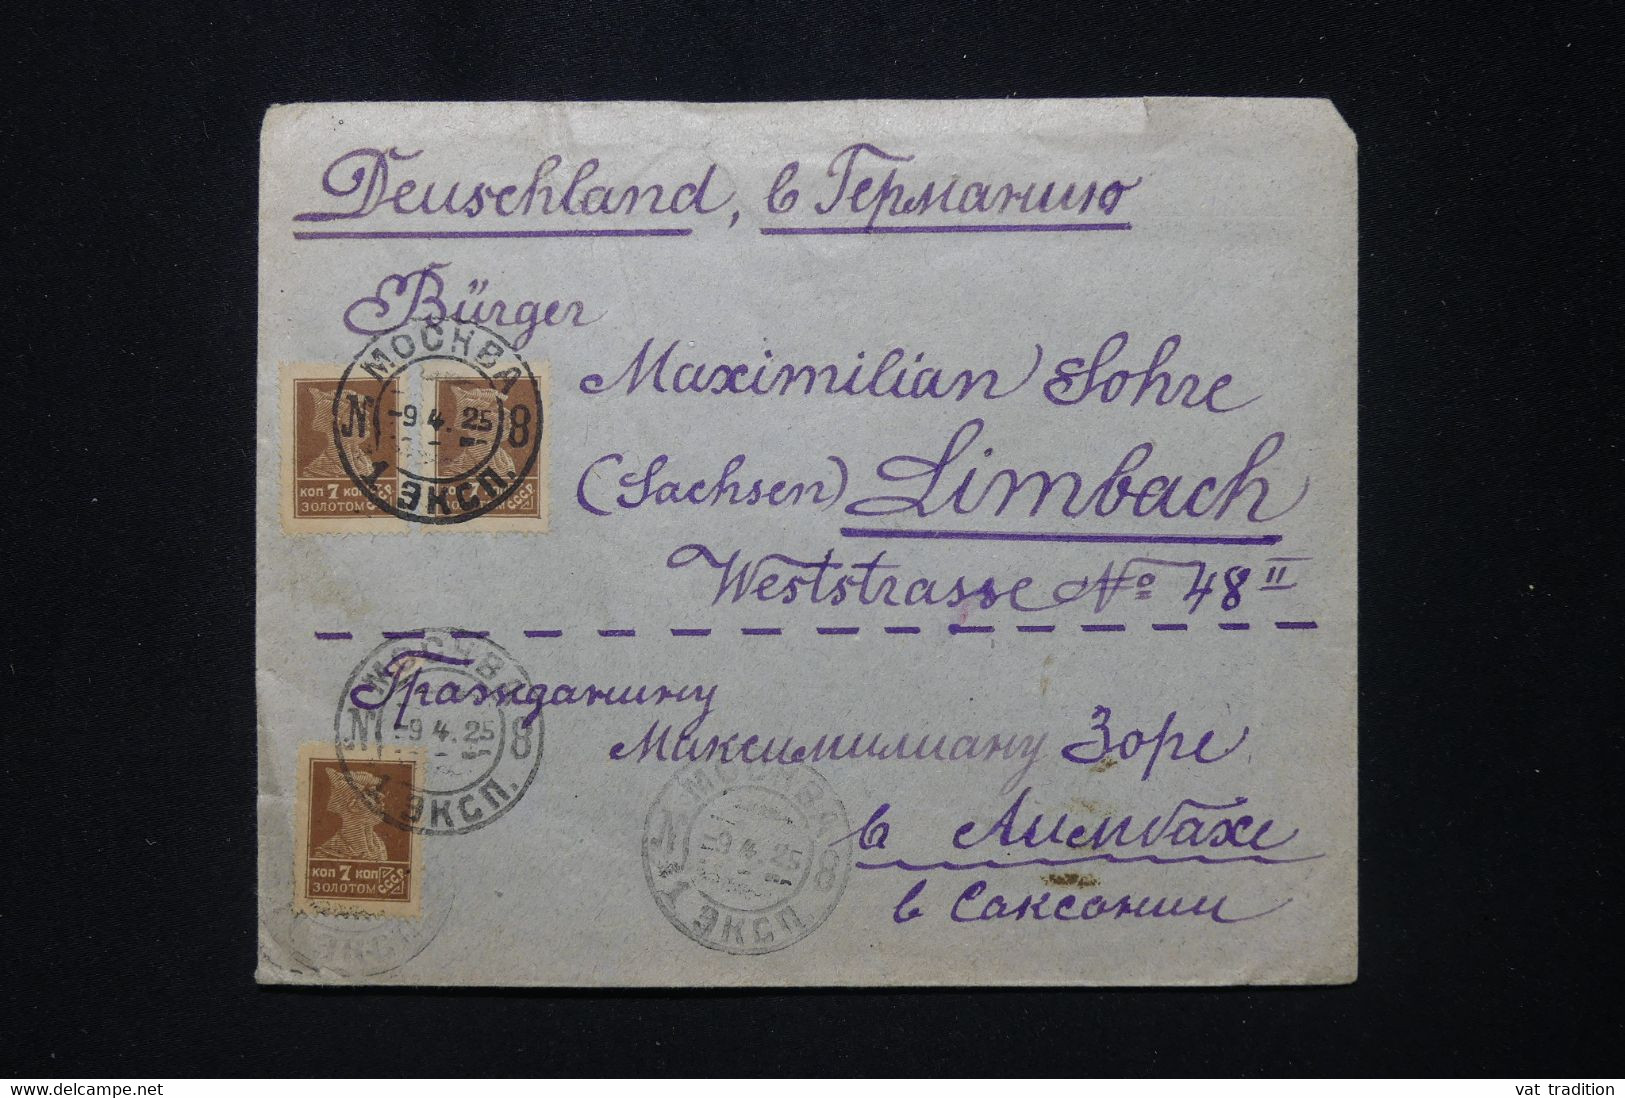 Deuschland, в Германию
Bürger
Maximilian Sohre
(Sachsen) Limbach
Weststrasse No 48 II
МОСКВА
№ 8
-9.4.25
1 ЭКСП.
КОП 7 КОП
ЗОЛОТОМ СССР
Гражданину
Максимилиану Зоре
в Лимбахе
в Саксонии
МОСКВА
№ 8
-9.4.25
1 ЭКСП.
КОП 7 КОП
ЗОЛОТОМ СССР
МОСКВА
№ 8
-9.4.25
1 ЭКСП.
www.delcampe.net
vat tradition